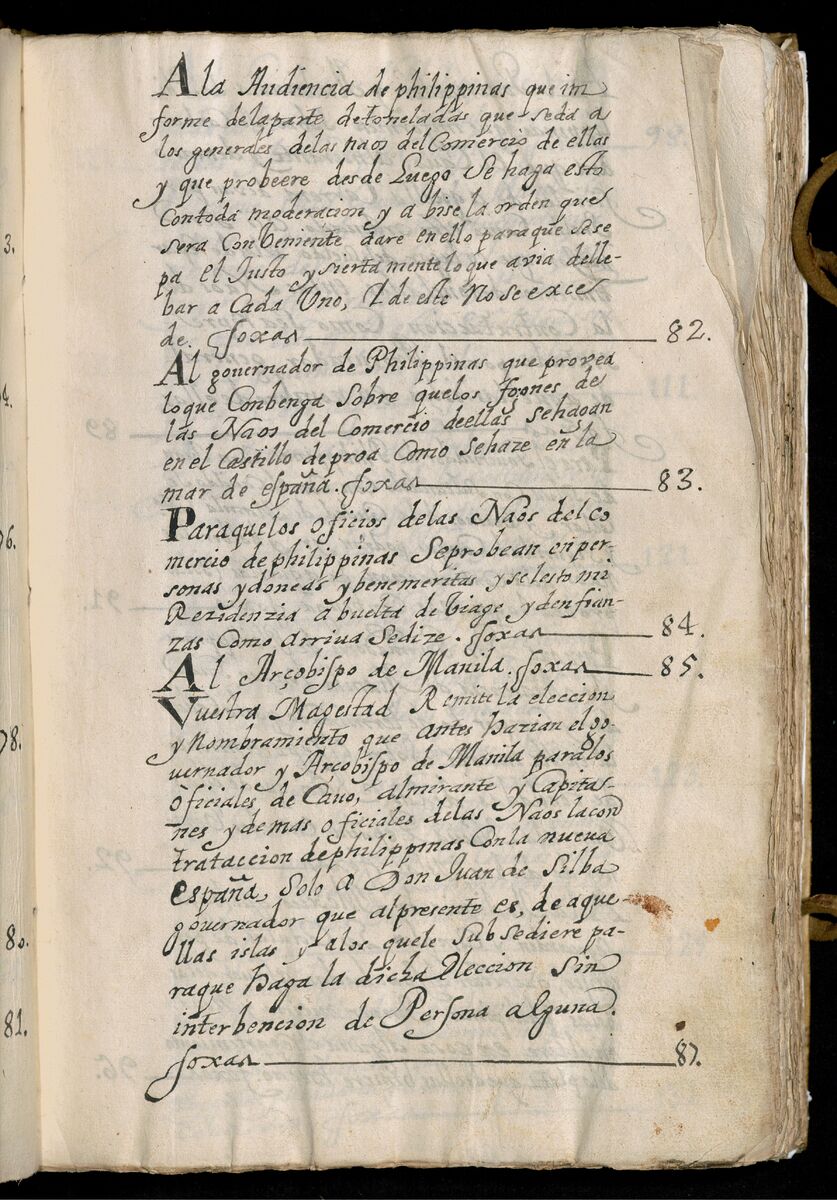 A la Audiencia de philippinas que im
forme de la parte de toneladas que se da a
los generales de las naos del Comercio de ellas
y que probeere desde Luego Se haga esto
Contoda moderacion y abise la orden que
sera ConBeniente dare en ello para que sese
pa el Justo y siertamente lo que avia delle-
bar a Cada Uno, I de esto No se exce
de. foxas 82.
Al governador de Philippinas que provea
lo que Conbenga Sobre quelos fogones de
las Naos del Comercio deellas sehagan
en el Castillo de proa Como Sehaze en la
mar de españa. foxas 83.
Paraquelos oficios delas Naos del co
mercio de philippinas Seprobean en per-
sonas ydoneas y benemeritas y se les tomi
Rezidenzia abuelta de Viage y den fian-
zas Como arriva Sedize. foxas 84.
Al Arçobispo de Manila. foxas 85.
Vuestra Magestad Remite la eleccion
y Nombramiento que antes hazian el go-
vernador y Arçobispo de Manila paralos
oficiales de Cavo, almirante y Capita-
nes y demas oficiales delas Naos lacon
trataccion de philippinas Conla nueva
españa, Solo a Don Juan de Silba
governador que alpresente es, de aque-
llas islas y alos quele Subsediere pa-
raque haga la dicha Eleccion Sin
interbencion de Persona alguna.
foxas 87.
3.
4.
76.
78.
80.
81.